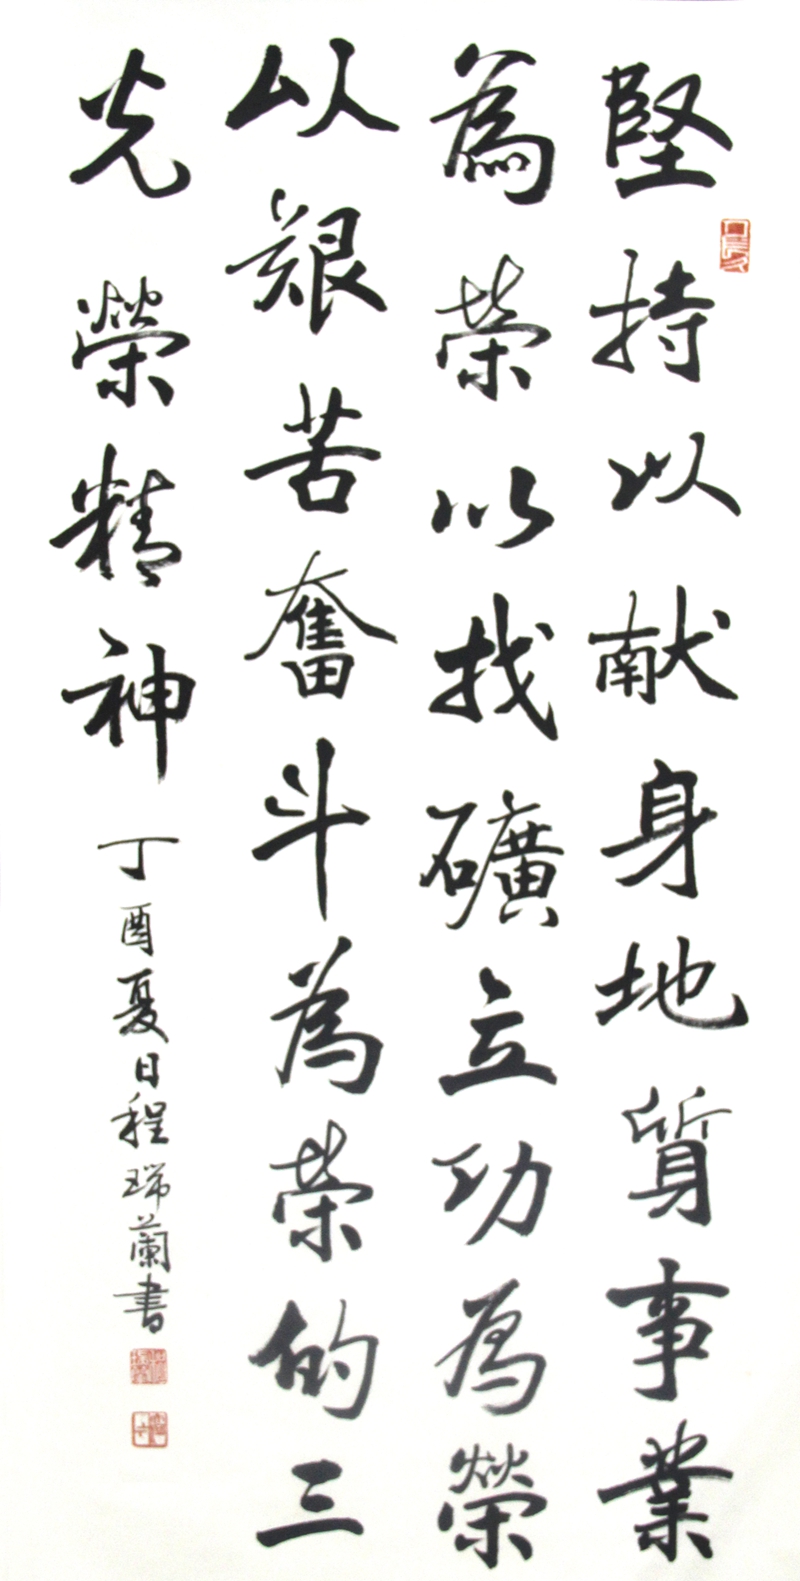 堅持以献身地質事業
為荣以找礦立功為榮
以艱苦奮斗為荣的三
光榮精神
丁酉夏日程瑞蘭書